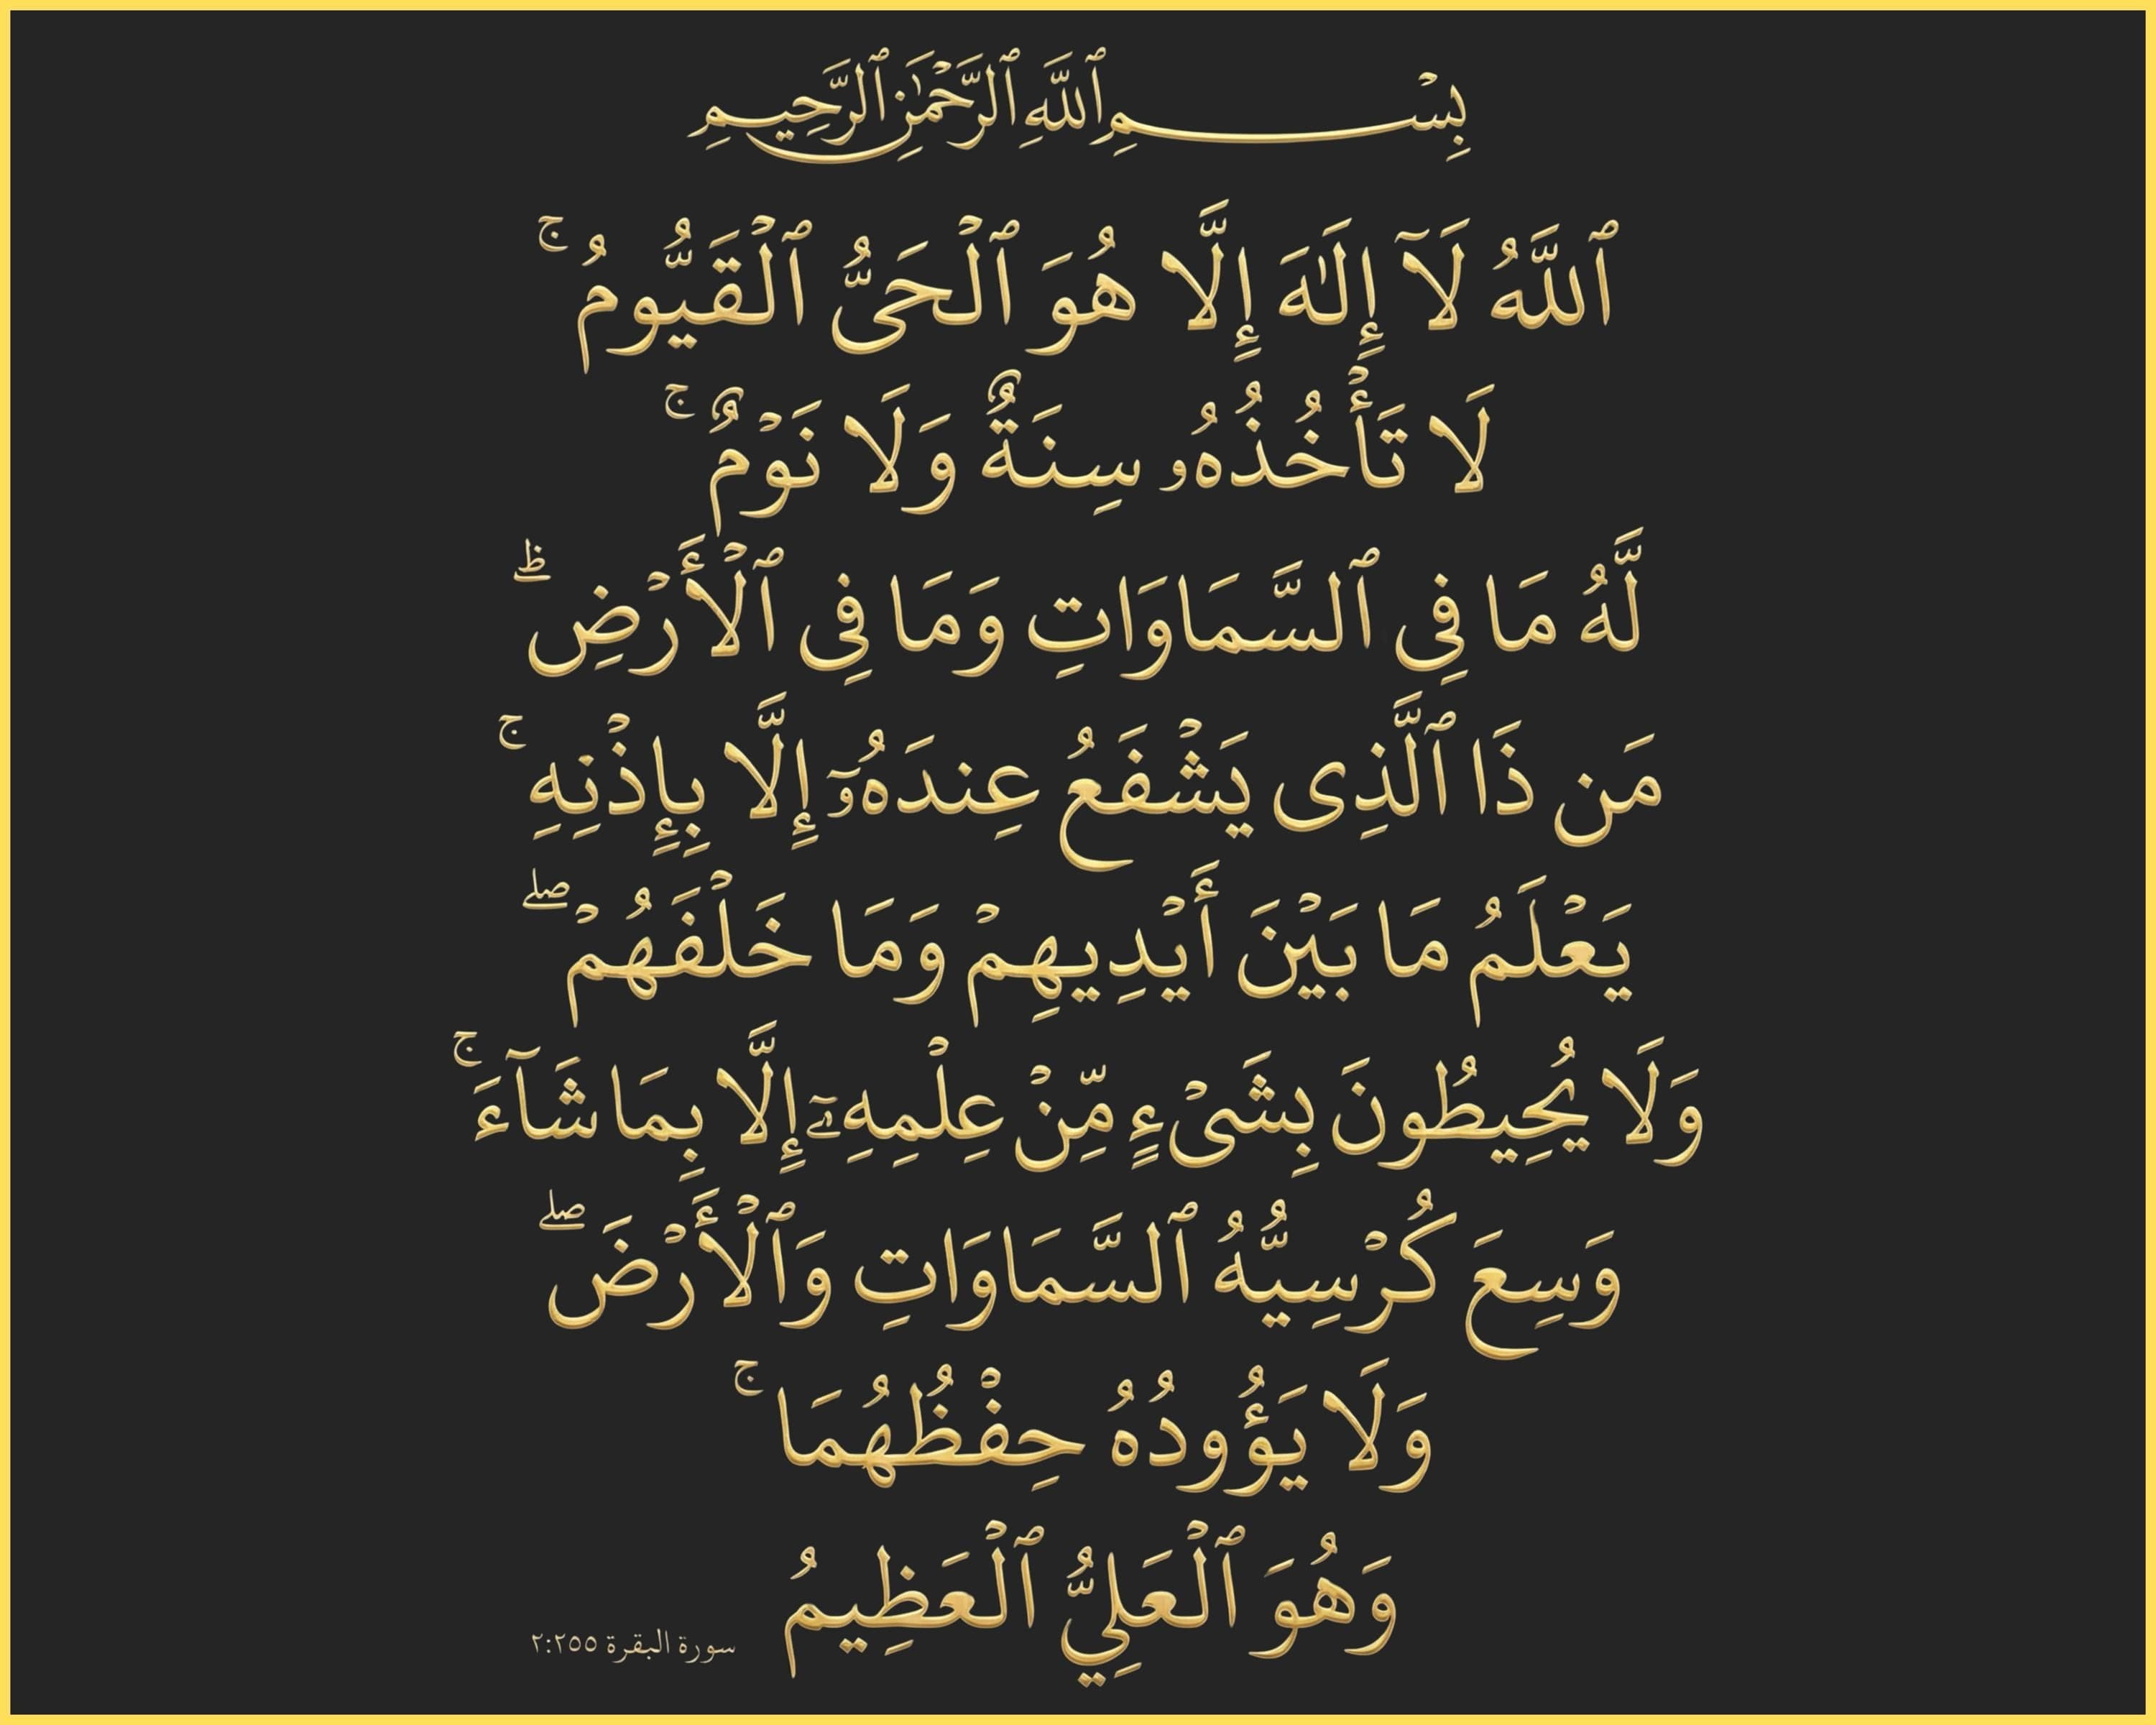 بِسْمِ ٱللَّهِ ٱلرَّحْمَٰنِ ٱلرَّحِيمِ
ٱللَّهُ لَآ إِلَٰهَ إِلَّا هُوَ ٱلْحَىُّ ٱلْقَيُّومُ ۚ
لَا تَأْخُذُهُۥ سِنَةٌ وَلَا نَوْمٌ ۚ
لَّهُ مَا فِى ٱلسَّمَاوَاتِ وَمَا فِى ٱلْأَرْضِ ۗ
مَن ذَا ٱلَّذِى يَشْفَعُ عِندَهُۥٓ إِلَّا بِإِذْنِهِ ۚ
يَعْلَمُ مَا بَيْنَ أَيْدِيهِمْ وَمَا خَلْفَهُمْ ۖ
وَلَا يُحِيطُونَ بِشَىْءٍ مِّنْ عِلْمِهِۦٓ إِلَّا بِمَا شَآءَ ۚ
وَسِعَ كُرْسِيُّهُ ٱلسَّمَاوَاتِ وَٱلْأَرْضَ ۖ
وَلَا يَؤُودُهُ حِفْظُهُمَا ۚ
وَهُوَ ٱلْعَلِيُّ ٱلْعَظِيمُ
سورة البقرة ٢:٢٥٥